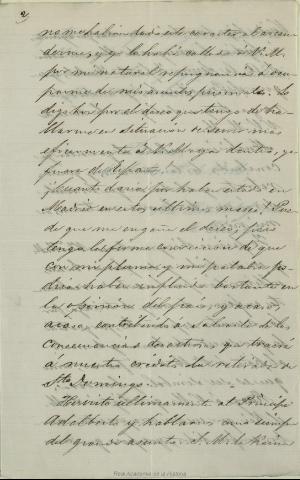 2
no me habian dado este caracter al ascen
derme, y yo lo habia callado á V. M.
por mi natural repugnancia á ocu
parme de mis asuntos personales. Lo
digo hoy por el deseo que tengo de ha
llarme en situacion de servir mas
eficazmente á V. M. haya dentro, ya
fuera de España.
¡Cuanto daria por haber estado en
Madrid en estos ultimos meses! Pue
de que me engañe el deseo, pero
tengo la firme conviccion de que
con mi pluma y mi palabra po
dria haber influido bastante en
la opinion del pais, y acaso,
acaso contribuido á salvarle de las
consecuencias desastrosas que traerá
á nuestro credito la retirada de
Sto. Domingo.
He visto ultimamente al Principe
Adalberto y hablamos como siempre
del grande asunto. S. M. la Reina
Real Academia de la Historia